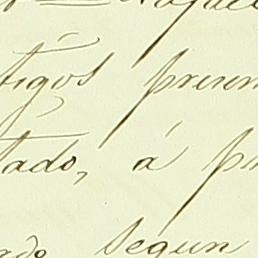 tigos presen
tado, á pr
rdo segun